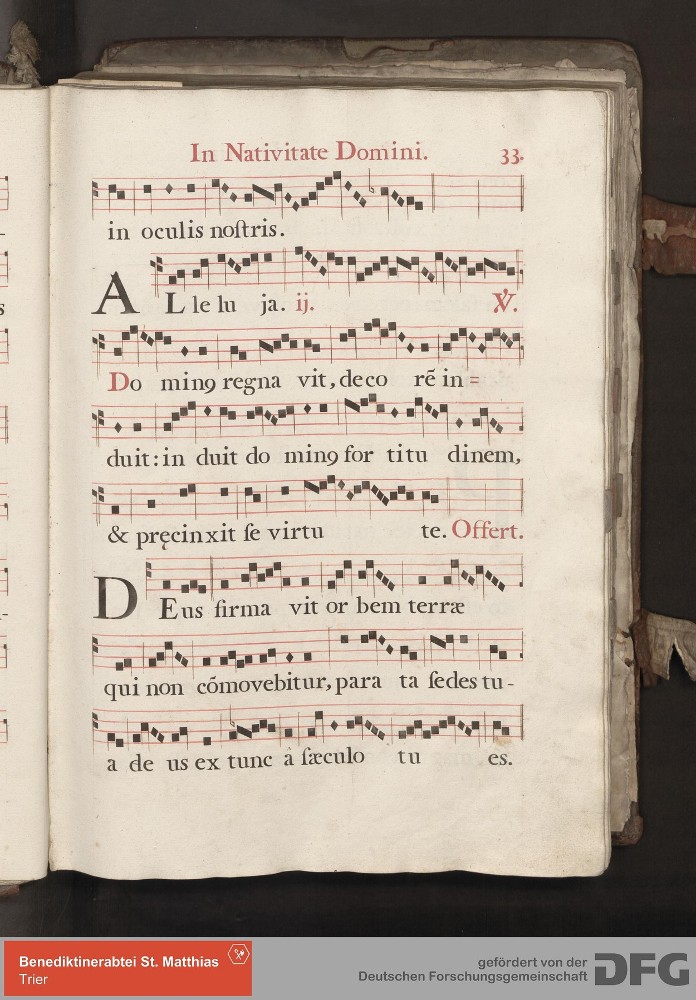 In Nativitate Domini. 33.
in oculis noſtris.
AL le lu ja. ij. ℣.
Do minꝯ regna vit, deco rē in=
duit: in duit do minꝯ for titu dinem,
& pręcinxit ſe virtu te. Offert.
DEus firma vit or bem terræ
qui non cōmovebitur, para ta ſedes tu-
a de us ex tunc â ſæculo tu es.
s
-
-
Benediktinerabtei St. Matthias
Trier
gefördert von der
Deutschen Forschungsgemeinschaft
DFG